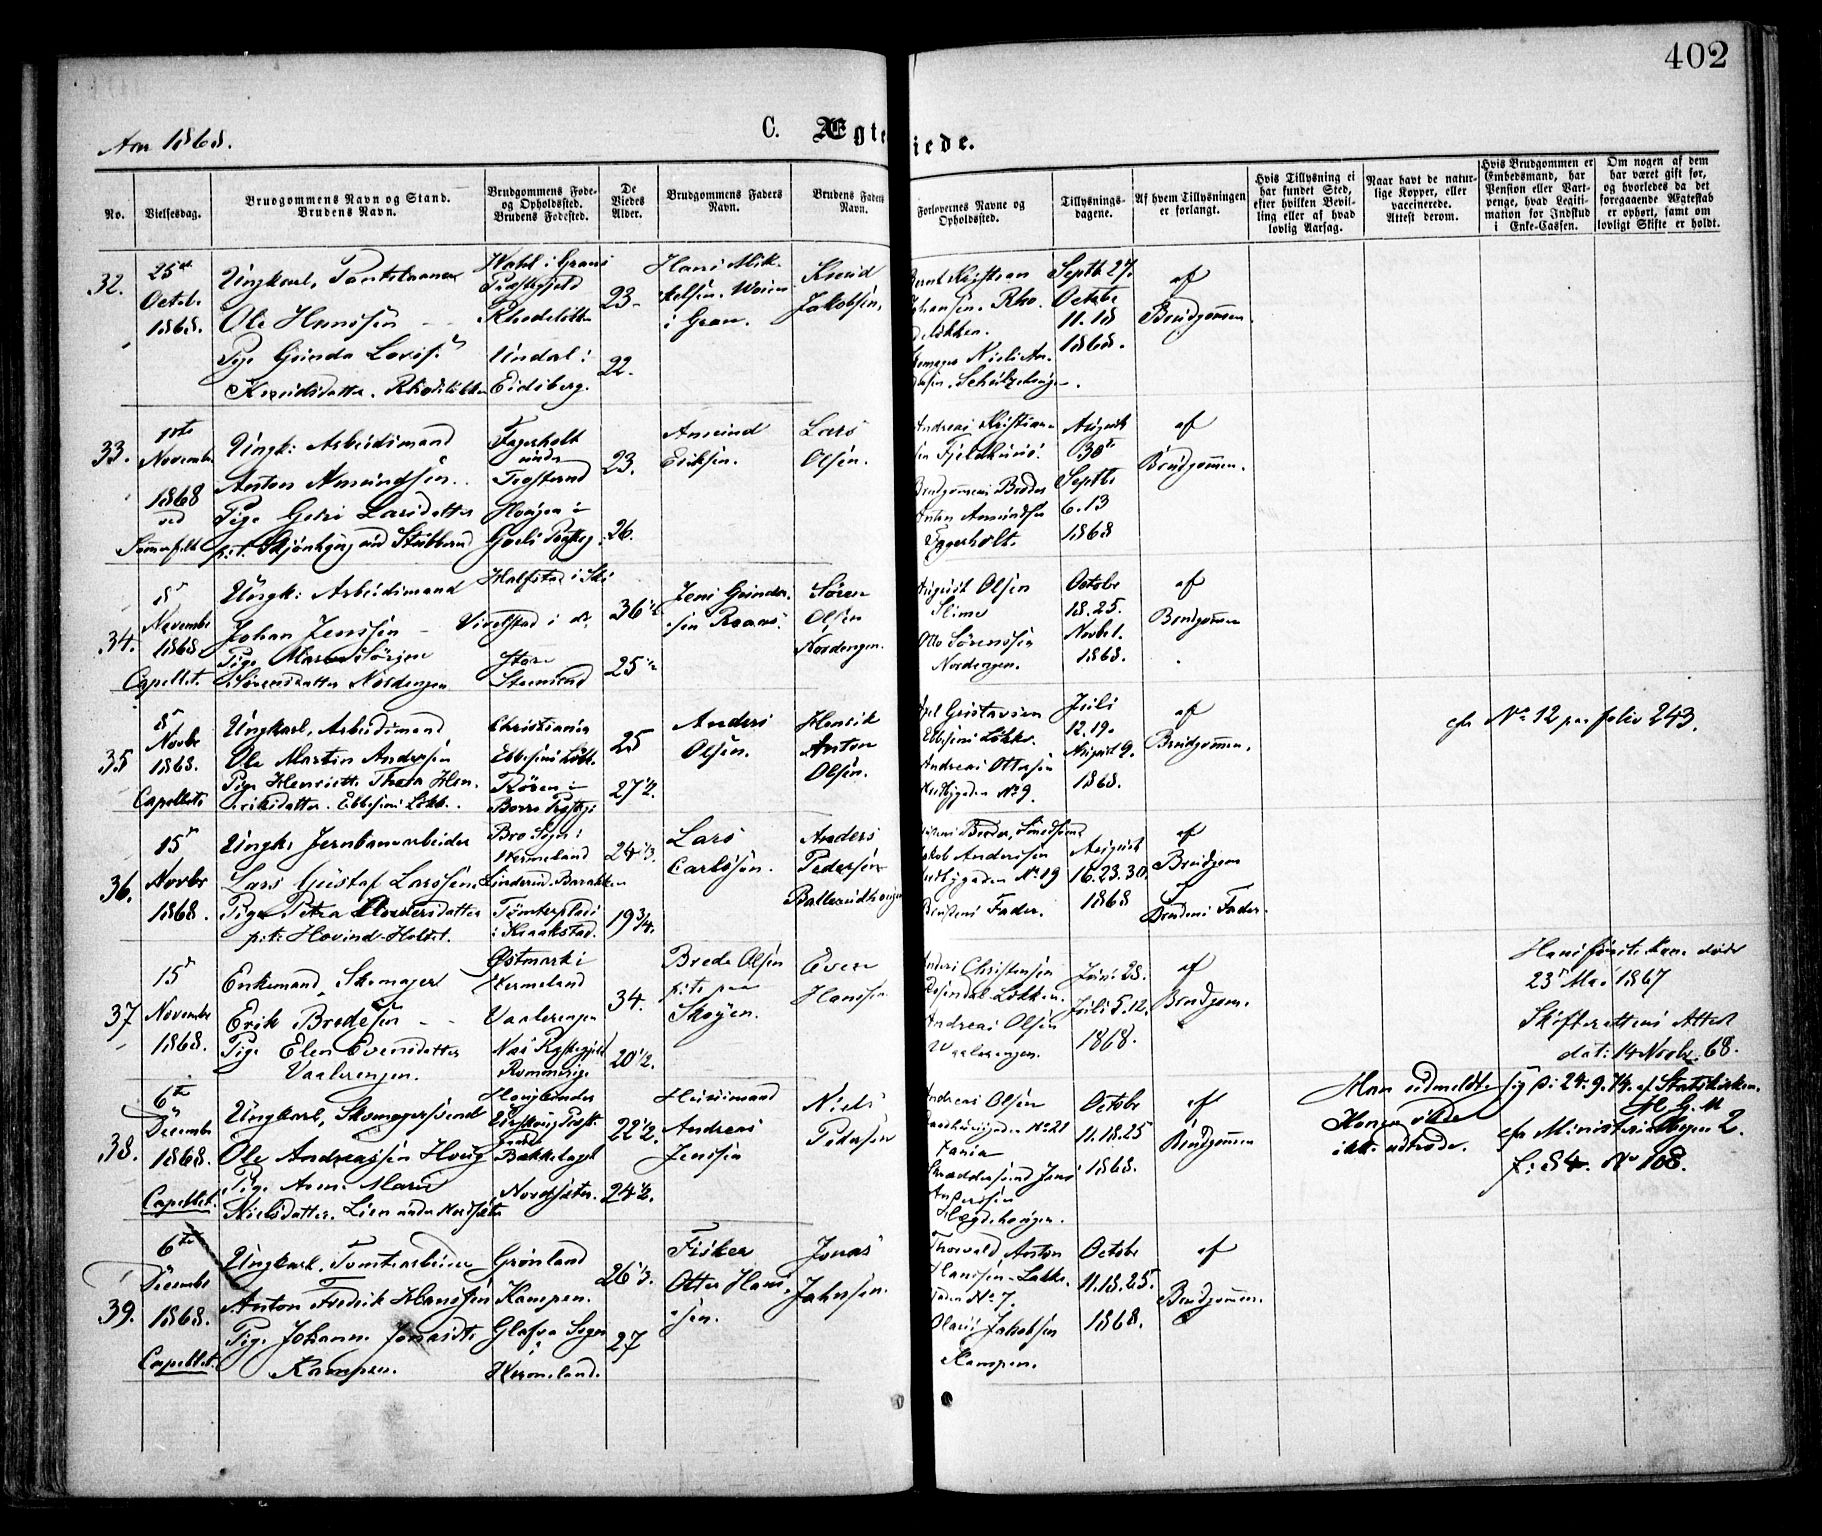 402
Aar 1868.
C. Ægte
iede.
No.
Vielsesdag.
Brudgommens Navn og Stand.
Brudens Navn.
Brudgommens Føde-
og Opholdssted.
Brudens Fødested.
De
Viedes
Alder.
Brudgommens Faders
Navn.
Brudens Faders
Navn.
Forlovernes Navne og
Opholdsted.
Tillysnings-
dagene.
Af hvem Tillysningen
er forlangt.
Hvis Tillysning ei
har fundet Sted,
efter hvilken Bevil-
ling eller af hvad
lovlig Aarsag.
Naar havt de natur-
lige Kopper, eller
vaccinerede.
Attest derom.
Hvis Brudgommen er
Embedsmand, har
Pension eller Vart-
penge, hvad Legiti-
mation for Indskud
i Enke-Cassen.
Om nogen af dem
har været gift før,
og hvorledes da det
foregaaende Ægteskab
er ophørt, samt om
lovligt Skifte er holdt.
32.
25de
Octobr
1868.
Ungkarl,
Ole Hanssen
Pige Gunda Lovise
Knudsdatter. Rhodeløkken
Præstegjeld
Rhodeløkken
Eidsberg.
23
22.
Hans Mik-
kelsen.
i Gran.
Knud
Jakobsen.
Bernt Kristian
Johansen. Rho-
deløkken.
Septbr 27.
Octobr
11. 18
1868.
af
Brudgommen.
33.
1ste
Novembr
1868
ved
Ungk: Arbeidsmand
Anton Amundsen.
Pige Larsdatter
Fagerholt
under
23.
26.
Amund
Eriksen.
Lars
Olsen.
Andreas Kristian-
sen
Brudgommens Broder
Anton Amundsen
Fagerholt.
August
30te
Septbr
6. 13
1868
af
Brudgommen.
34.
8de
Novembr
1868
Capellet.
Ungk: Arbeidsmand
Johan Jenssen
Pige Maren Sørine
Sørensdatter Nordengen
Halfstad i Ski
Store
Steensrud
36 1/2
25 1/2
Jens Gunder-
sen
Søren
Olsen
Nordengen.
August Olsen
Slime
Otto Sørenssen
Nordengen.
Octobr
18. 25.
Novbr 1.
1868.
af
Brudgommen
35
8de
Novbr
1868.
Capellet
Ungkarl, Arbeidsmand
Ole Martin Andersen
Pige Henriette Thea Hen-
riksdatter. Ebbesens Løkke.
Christiania
Ebbesens Løkke.
Røren i
Borre Præstegj
25
27 1/2.
Anders
Olsen.
Henrik
Anton
Olsen.
Axel Gustavsen
Ebbesens Løkke.
Andreas Ottersen
No 9.
Juli
12. 19.
August 9.
1868.
af
Brudgommen.
cfr No 12 paa folio 243.
36.
15de
Novbr
1868.
Ungk: Jernbanearbeider
Lars Gustaf Larssen
Pige Petra Andersdatter
p.t. Hovind-Holdet.
Bro Sogn i
Wermeland
Linderud-Barakken
i Kraakstad.
24 1/3.
19 3/4.
Lars
Carlssen.
Anders
Pedersen
Brudens Broder,
Jakob Anderssen
No 19
Brudens Fader.
August
16. 23. 30.
1868
af
Brudgom
af
Brudens Fader.
37
15de
Novembr
1868.
Enkemand, Skomager
Erik Bredesen
Pige Elen Evensdatter
Vaalerengen.
Østmark i
Wermeland
Vaalerengen
Næs Præstegjeld
Romerige
34.
20 1/2.
Brede Olsen
p.t. paa
Skøyen.
Even
Hanssen
Anders Christensen
Rosendal-Løkken.
Andreas Olsen
Waalerengen.
Juni 28.
Juli 5. 12.
1868.
af
Brudgom.
Hans første Kone døde
23de Mai 1867
Skifterettens Attest
dat: 14 Novbr. 68.
38.
6te
Decembr
1868.
Capellet.
Ungkarl, Skomagersvend
Ole Andreassen Houg
Pige Anne Marie
Nielsdatter. Lien under Nordsæter
Bækkelaget
Nordsæter.
22 1/2.
24 1/2.
Huusmand
Andreas
Jenssen
Niels
Pedersen
Andreas Olsen
No 21
Skræddersvend Jens
Anderssen
Hegdehaugen.
Octobr
11. 18. 25
1868.
af
Brudgommen
Man udmeldte sig d: 24. 9. 74. af Statskirken.
Konen vilde
ikke udtræde.
cfr Ministerialbogen 2.
f: 84. No 108.
39.
6te
Decembr
1868.
Capellet.
Ungkarl, Tomtearbeider
Anton Fredrik Hanssen
Pige Johanne Jonasdtr
Kampen.
Grønland
Kampen.
Glafva Sogn
i
Wermeland.
26 1/3.
27
Fisker
Otter Hans-
sen.
Jonas
Jahnsen.
Thorvald Anton
Hanssen-Lakke-
gaden No 7.
Olaus Jakobsen
Kampen.
Octobr
11. 18. 25.
1868.
af
Brudgommen.